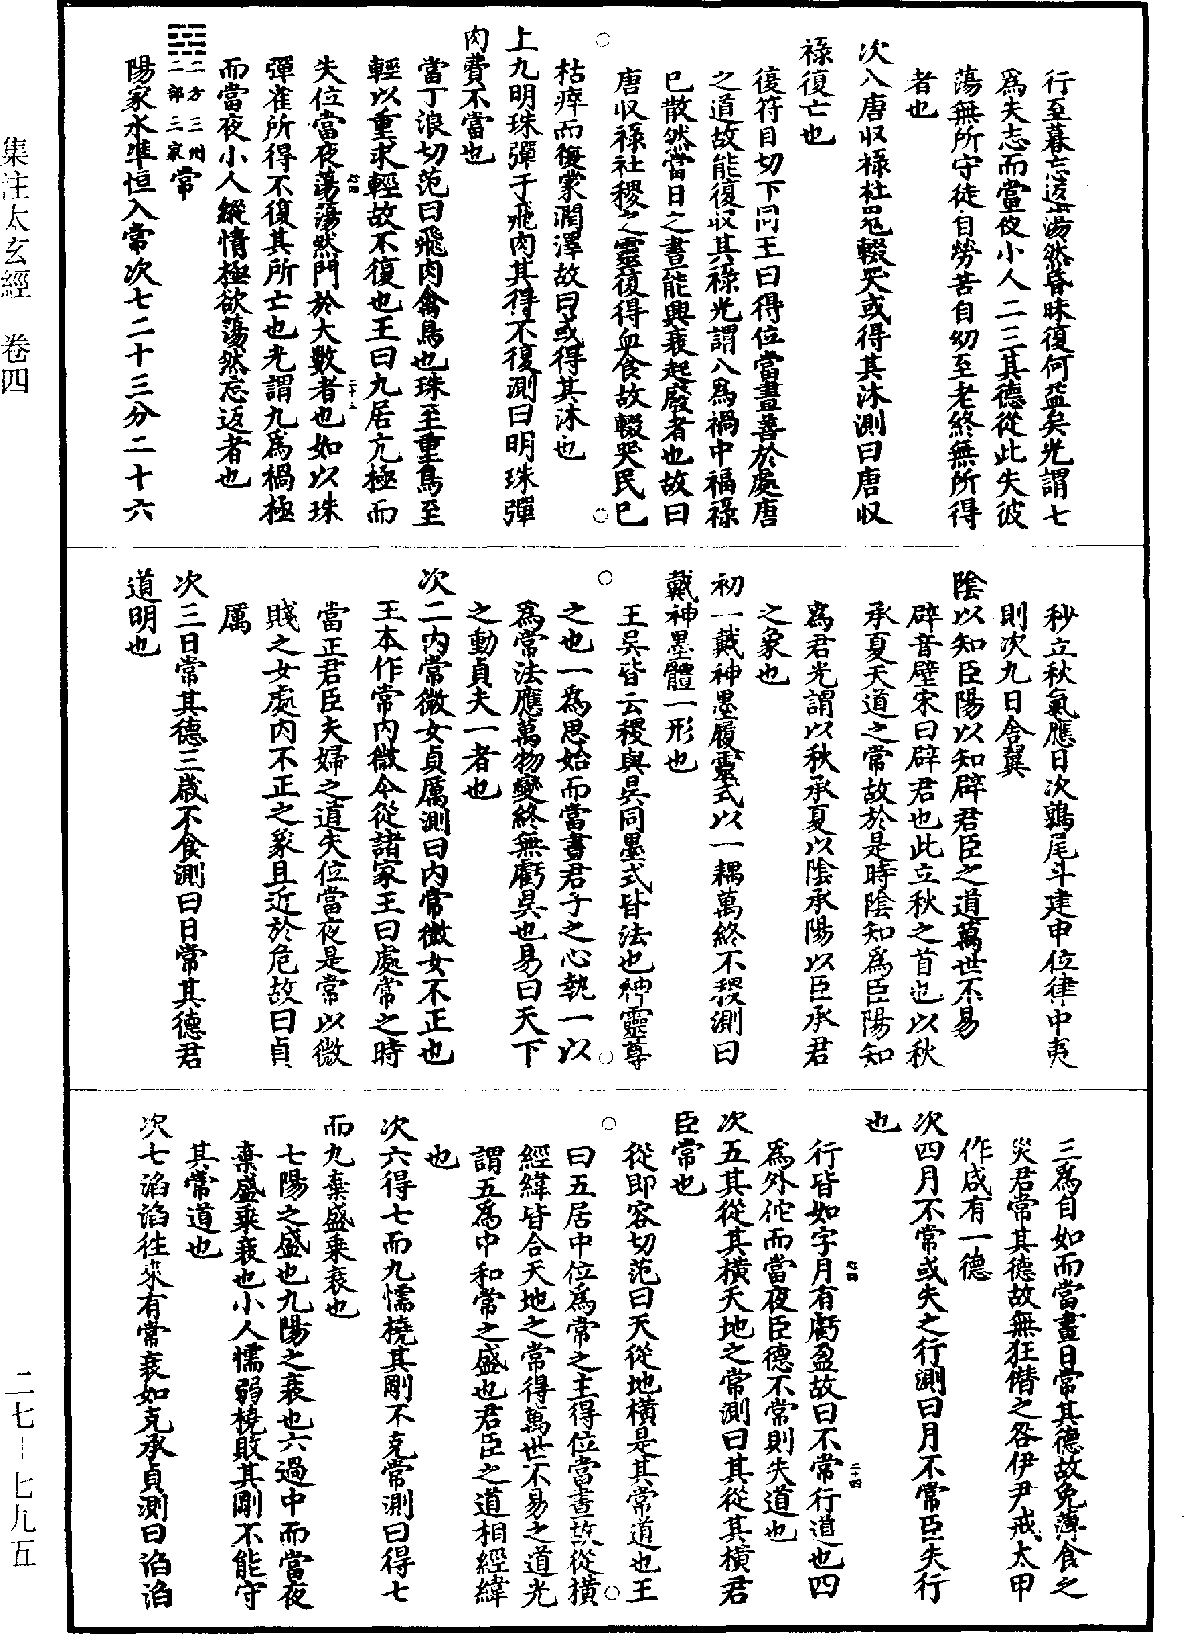 行至暮忘返蕩然昏昧復何益矣光謂七
爲失志而當夜小人二三其德從此失彼
蕩無所守徒自勞苦自幼至老終無所得
者也
次八唐収祿社鬼輟哭或得其沐測曰唐収
祿復亡也
復符目切下同王曰得位當晝善於處唐
之道故能復収其祿光謂八爲禍中福祿
已散然當日之晝能興衰起廢者也故曰
唐収祿社稷之靈復得血食故輟哭民已
枯瘁而復蒙潤澤故曰或得其沐也
上九明珠彈于飛肉其得不復測曰明珠彈
肉費不當也
當丁浪切范曰飛肉禽鳥也珠至重鳥至
輕以重求輕故不復也王曰九居亢極而
失位當夜蕩蕩然門於大數者也如以珠
彈雀所得不復其所亡也光謂九爲禍極
而當夜小人縱情極欲蕩然忘返者也
二方三州二部三家常
陽家水準恒入常次七二十三分二十六
秒立秋氣應日次鶉尾斗建申位律中夷
則次九日舍翼
陰以知臣陽以知辟君臣之道萬世不易
辟音壁宋曰辟君也此立秋之首也以秋
承夏天道之常故於是時陰知爲臣陽知
爲君光謂以秋承夏以陰承陽以臣承君
之象也
初一戴神墨履靈式以一耦萬終不稷測曰
戴神墨體一形也
王吳皆云稷與昃同墨式皆法也神靈尊
之也一爲思始而當晝君子之心執一以
爲常法應萬物變終無虧昃也易曰天下
之動貞夫一者也
次二内常微女貞厲測曰内常微女不正也
王本作常内微今從諸家王曰處常之時
當正君臣夫婦之道失位當夜是常以微
賤之女處内不正之象且近於危故曰貞
厲
次三日常其德三歲不食測曰日常其德君
道明也
三爲自如而當晝日常其德故免薄食之
災君常其德故無狂僭之咎伊尹戒太甲
作咸有一德
次四月不常或失之行測曰月不常臣失行
也
行皆如字月有虧盈故曰不常行道也四
爲外佗而當夜臣德不常則失道也
次五其從其橫天地之常測曰其從其橫君
臣常也
從即容切范曰天從地橫是其常道也王
曰五居中位爲常之主得位當晝故從橫
經緯皆合天地之常得萬世不易之道光
謂五爲中和常之盛也君臣之道相經緯
也
次六得七而九懦橈其剛不克常測曰得七
而九棄盛乘衰也
七陽之盛也九陽之衰也六過中而當夜
棄盛乘衰也小人懦弱橈敗其剛不能守
其常道也
次七滔滔往來有常衰如克承貞測曰滔滔
集注太玄經　卷四
二七－七九五